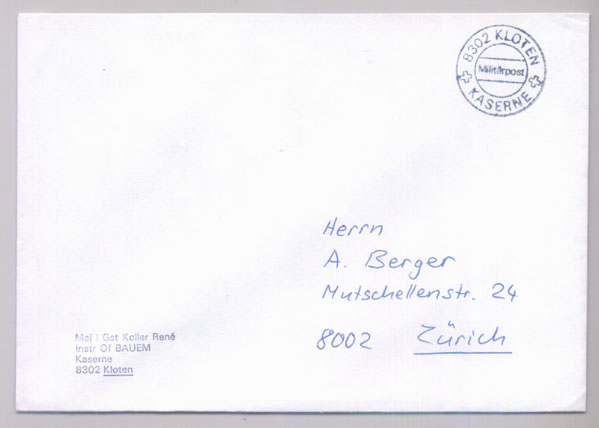 8302 KLOTEN
Militärpost
KASERNE
Herrn
A. Berger
Mutschellenstr. 24
8002 Zürich
Maj i Gst Koller René
Instr Of BAUEM
Kaserne
8302 Kloten